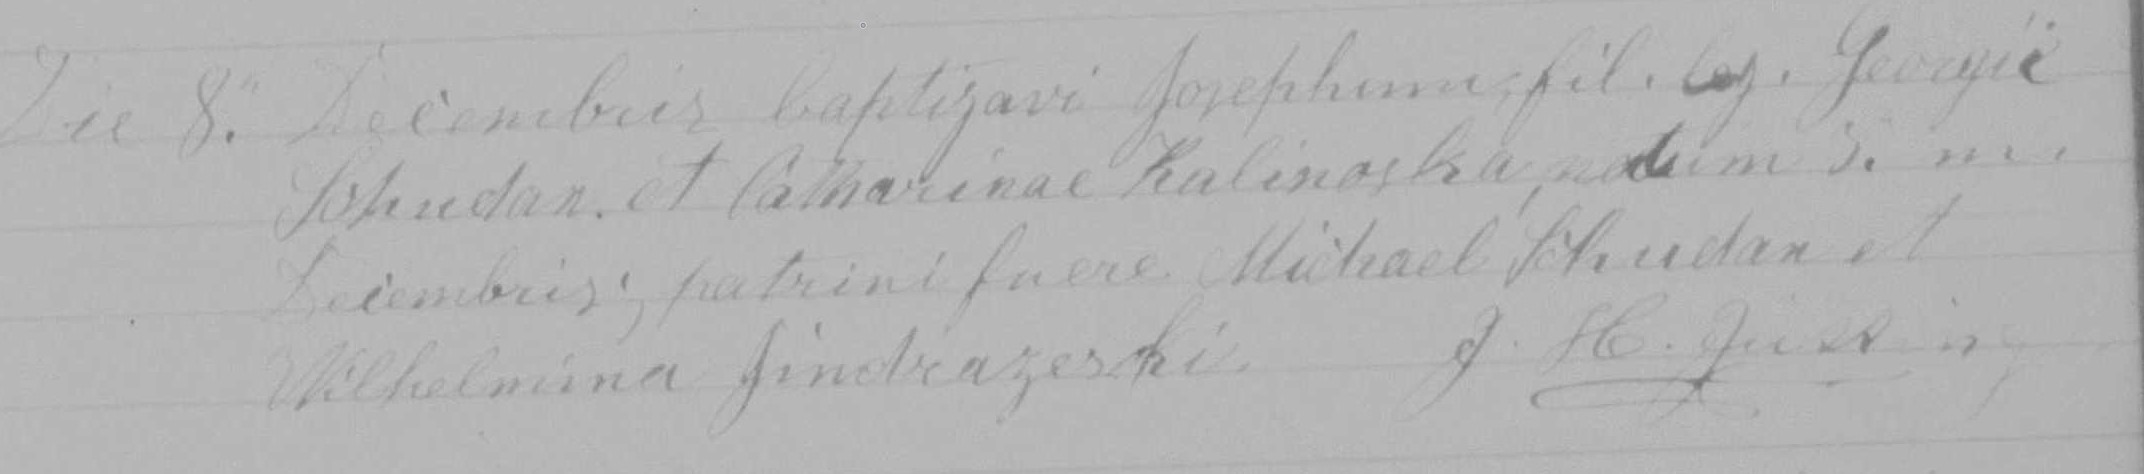 Die 8.a Decembris baptizavi Josephum, fil. leg. Georgii
Schudan. et Catharinae Kalinoska, natum 3. m.
Decembris; patrini fuere Michael Schudan et
Wilhelmina Jindrazeski. J. H.